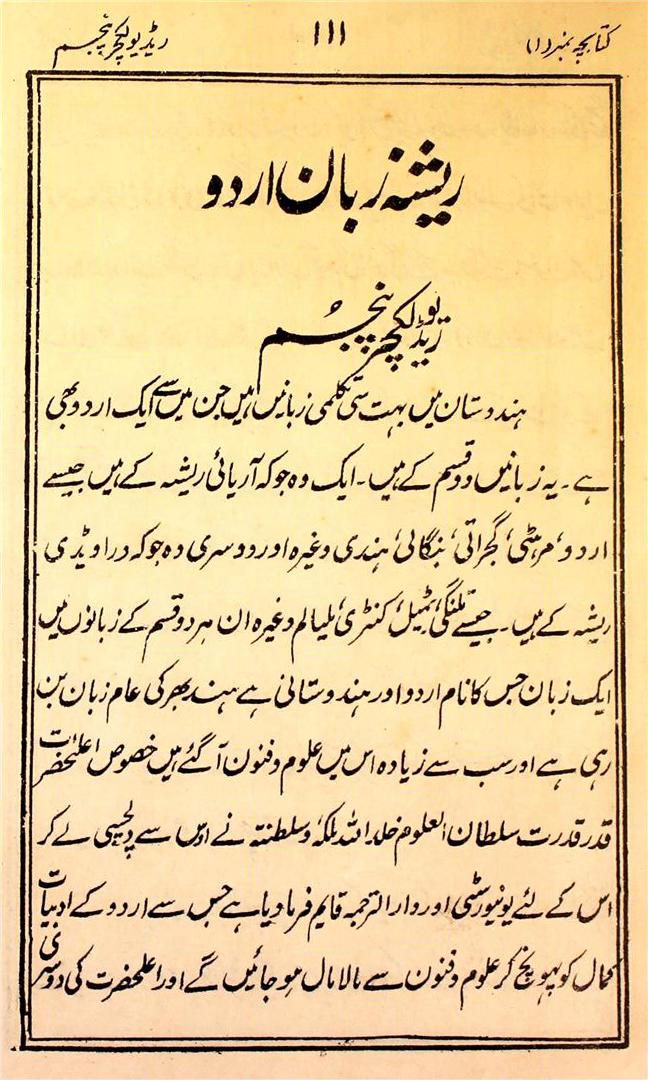 کتابچہ نمبر (۱)
۱۱۱
ریڈیو لکچر پنجم
ریشہ زبان اردو
ریڈیو لکچر پنجم
ہندوستان میں بہت سی تکلمی زبانیں ہیں جن میں سے ایک اردو بھی
ہے۔ یہ زبانیں دو قسم کے ہیں۔ ایک وہ جو کہ آریائی ریشہ کے ہیں جیسے
اردو، مرہٹی، گجراتی، بنگالی، ہندی وغیرہ اور دوسری وہ جو کہ دراویڈی
ریشہ کے ہیں۔ جیسے تلنگی، ٹمیل، کنٹری، ملیالم وغیرہ ان ہر دو قسم کے زبانوں میں
ایک زبان جس کا نام اردو اور ہندوستانی ہے ہند بھر کی عام زبان بن
رہی ہے اور سب سے زیادہ اس میں علوم و فنون آگئے ہیں خصوص اعلحضرت
قدر قدرت سلطان العلوم خلد اللہ ملکہ و سلطنتہ نے اوس سے دلچسپی لے کر
اس کے لئے یونیورسٹی اور دار الترجمہ قایم فرما دیا ہے جس سے اردو کے ادبیات
کمال کو پہونچ کر علوم و فنون سے مالا مال ہو جائیں گے اور اعلحضرت کی دوسری